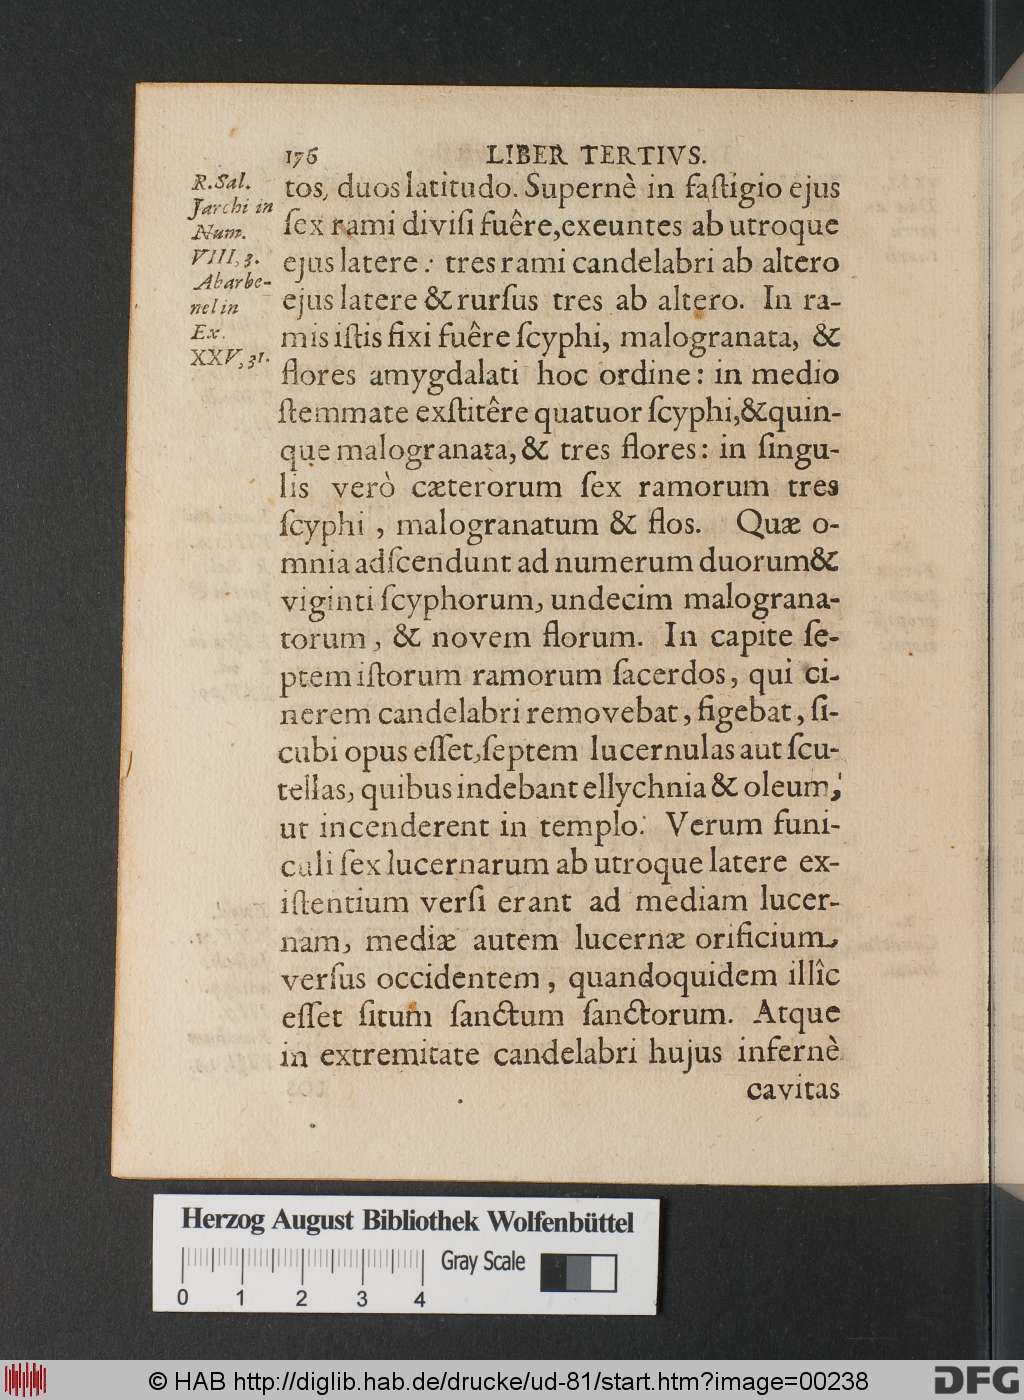 176 LIBER TERTIVS.
R. Sal.
Jarchi in
Num.
VIII, 3.
Abarbe-
nel in
Ex.
XXV, 31.
tos, duos latitudo. Supernè in faſtigio ejus
ſex rami diviſi fuêre, exeuntes ab utroque
ejus latere: tres rami candelabri ab altero
ejus latere & rurſus tres ab altero. In ra-
mis iſtis fixi fuêre ſcyphi, malogranata, &
flores amygdalati hoc ordine: in medio
ſtemmate exſtitêre quatuor ſcyphi, & quin-
que malogranata, & tres flores: in ſingu-
lis verò cæterorum ſex ramorum tres
ſcyphi, malogranatum & flos. Quæ o-
mnia adſcendunt ad numerum duorum &
viginti ſcyphorum, undecim malograna-
torum, & novem florum. In capite ſe-
ptem iſtorum ramorum ſacerdos, qui ci-
nerem candelabri removebat, figebat, ſi-
cubi opus eſſet, ſeptem lucernulas aut ſcu-
tellas, quibus indebant ellychnia & oleum,
ut incenderent in templo. Verum funi-
culi ſex lucernarum ab utroque latere ex-
iſtentium verſi erant ad mediam lucer-
nam, mediæ autem lucernæ orificium
verſus occidentem, quandoquidem illîc
eſſet ſitum ſanctum ſanctorum. Atque
in extremitate candelabri hujus infernè
cavitas
Herzog August Bibliothek Wolfenbüttel
Gray Scale
0 1 2 3 4
© HAB http://diglib.hab.de/drucke/ud-81/start.htm?image=00238
DFG